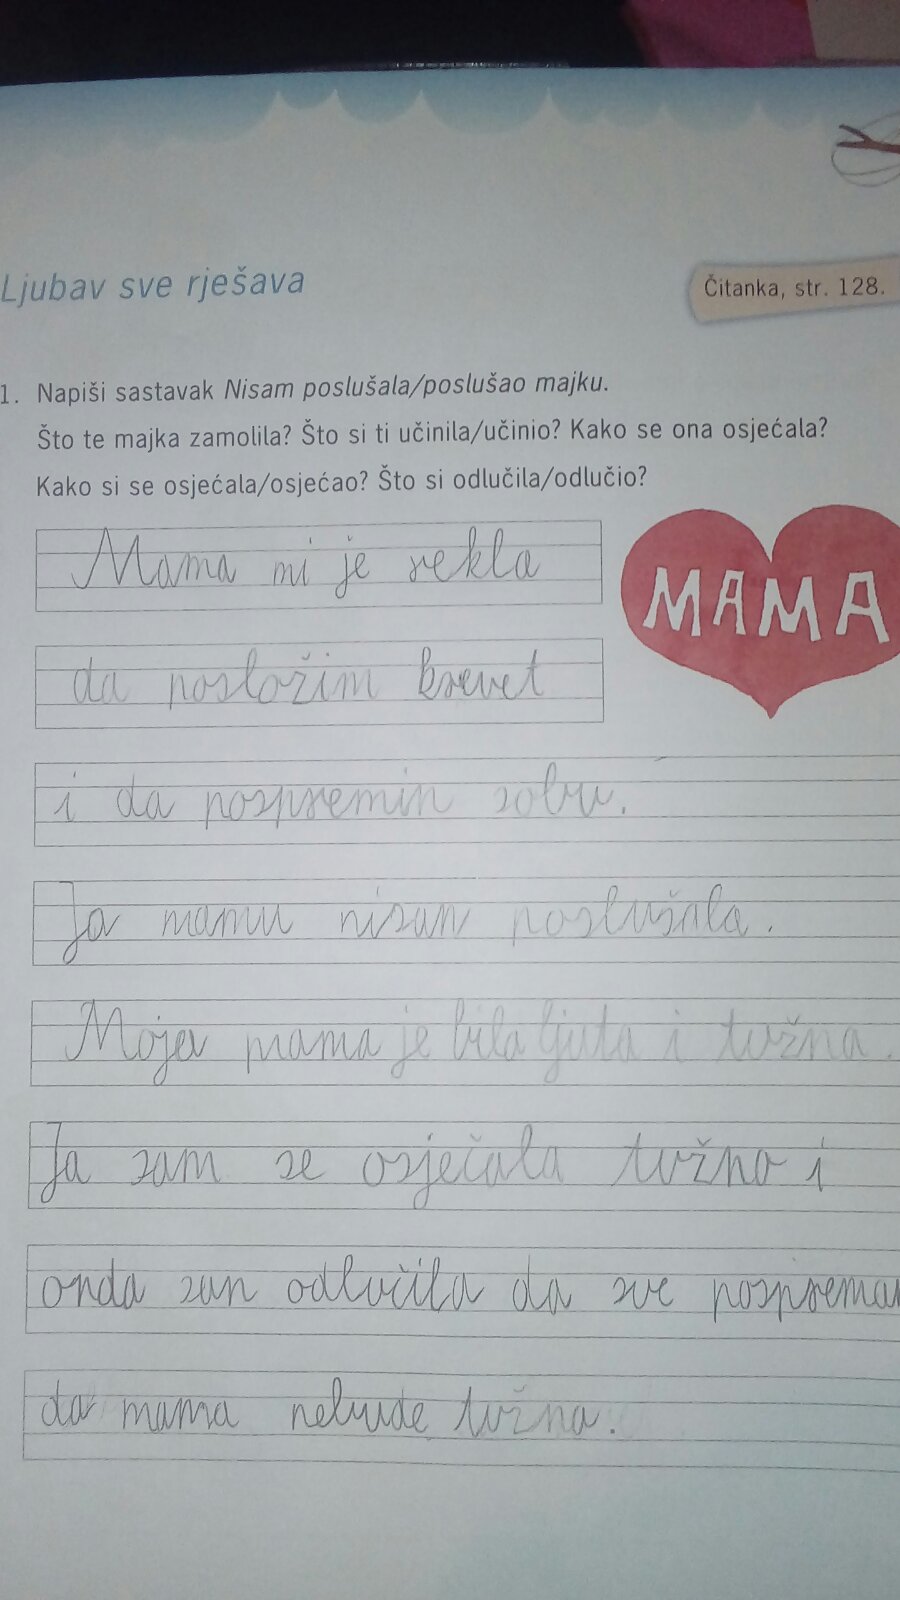 Ljubav sve rješava
Čitanka, str. 128.
1. Napiši sastavak Nisam poslušala/poslušao majku.
Što te majka zamolila? Što si ti učinila/učinio? Kako se ona osjećala?
Kako si se osjećala/osjećao? Što si odlučila/odlučio?
Mama mi je rekla
MAMA
da posložim krevet
i da pospremin sobu.
Ja mamu nisan poslušala.
Moja mama je bila ljuta i tužna.
Ja sam se osječala tužno i
onda san odlučila da sve
da mama nebude tužna.